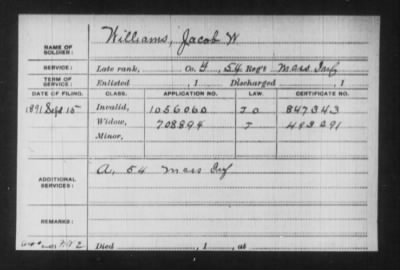 Williams, Jacob W.
NAME OF SOLDIER:
SERVICE: Late rank, Co. F, 54 Reg't Mass Inf
TERM OF SERVICE: Enlisted , 1 Discharged , 1
DATE OF FILING. CLASS. APPLICATION NO. LAW. CERTIFICATE NO.
1891 Sept 15 Invalid, 1056060 J O 847343
Widow, 708894 J 493291
Minor,
ADDITIONAL SERVICES: A, 54 Mass Inf
REMARKS:
Died , 1 , at